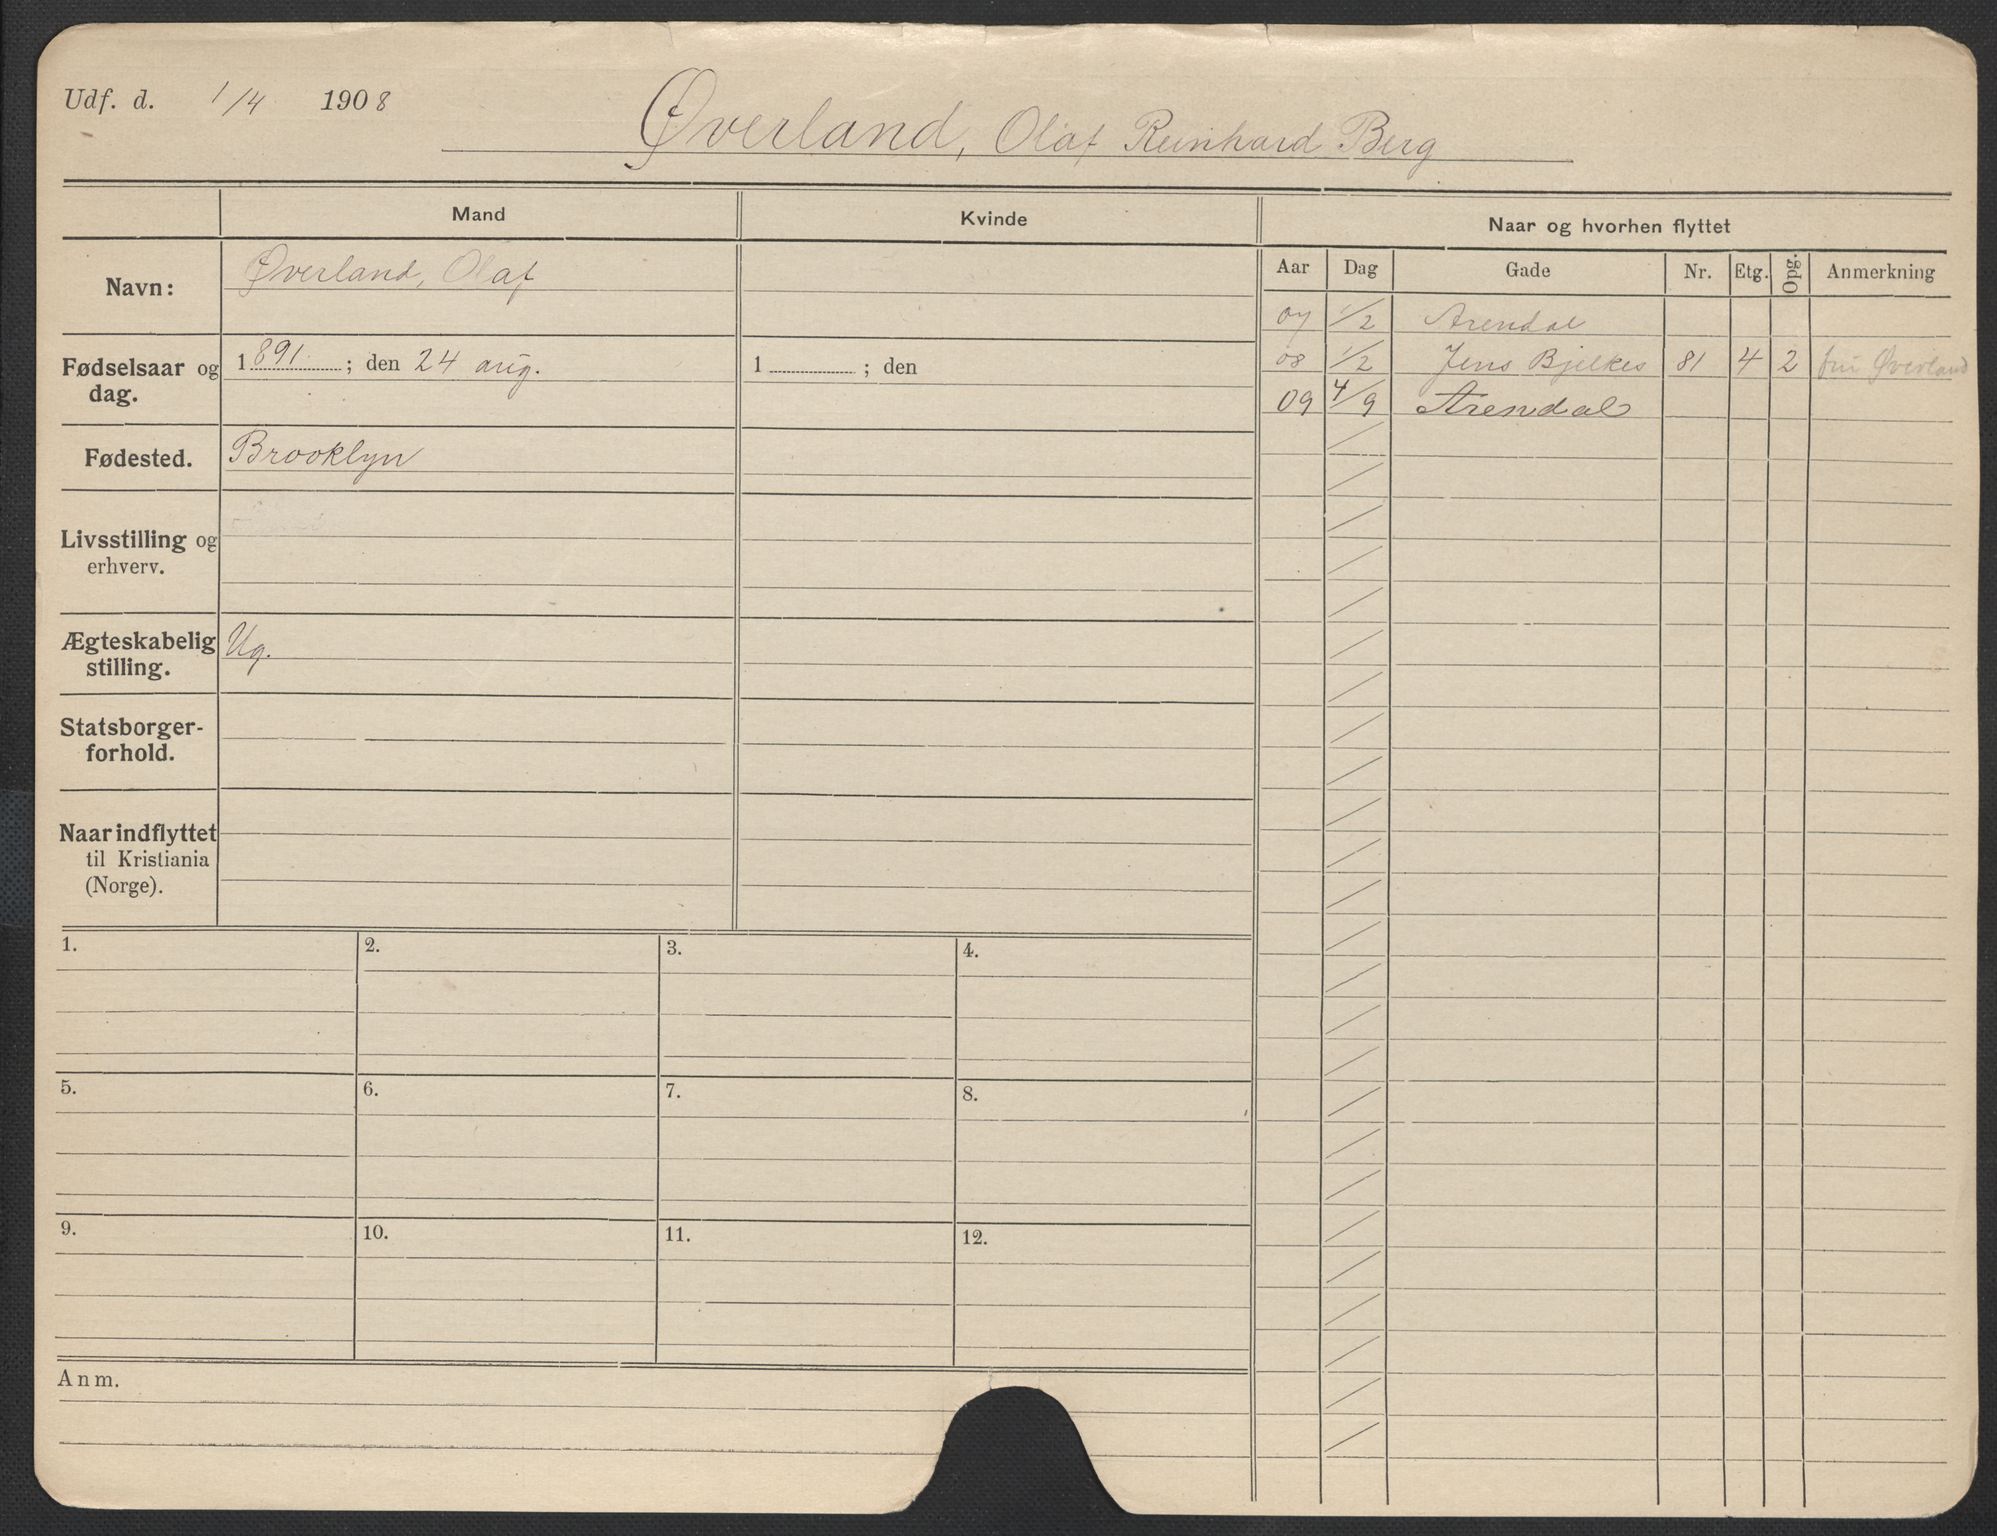 Udf. d. 1/4 1908
Øverland, Olaf Reinhard Berg
Mand
Kvinde
Naar og hvorhen flyttet
Navn:
Øverland, Olaf
Aar Dag Gade Nr. Etg. Opg. Anmerkning
07 1/2 Arendal
08 1/2 Jens Bjelkes 81 4 2 fru Øverland
09 4/9 Arendal
Fødselsaar og
dag.
1891 ; den 24 aug.
1 ; den
Fødested.
Brooklyn
Livsstilling og
erhverv.
Ægteskabelig
stilling.
Ug.
Statsborger-
forhold.
Naar indflyttet
til Kristiania
(Norge).
1. 2. 3. 4.
5. 6. 7. 8.
9. 10. 11. 12.
Anm.